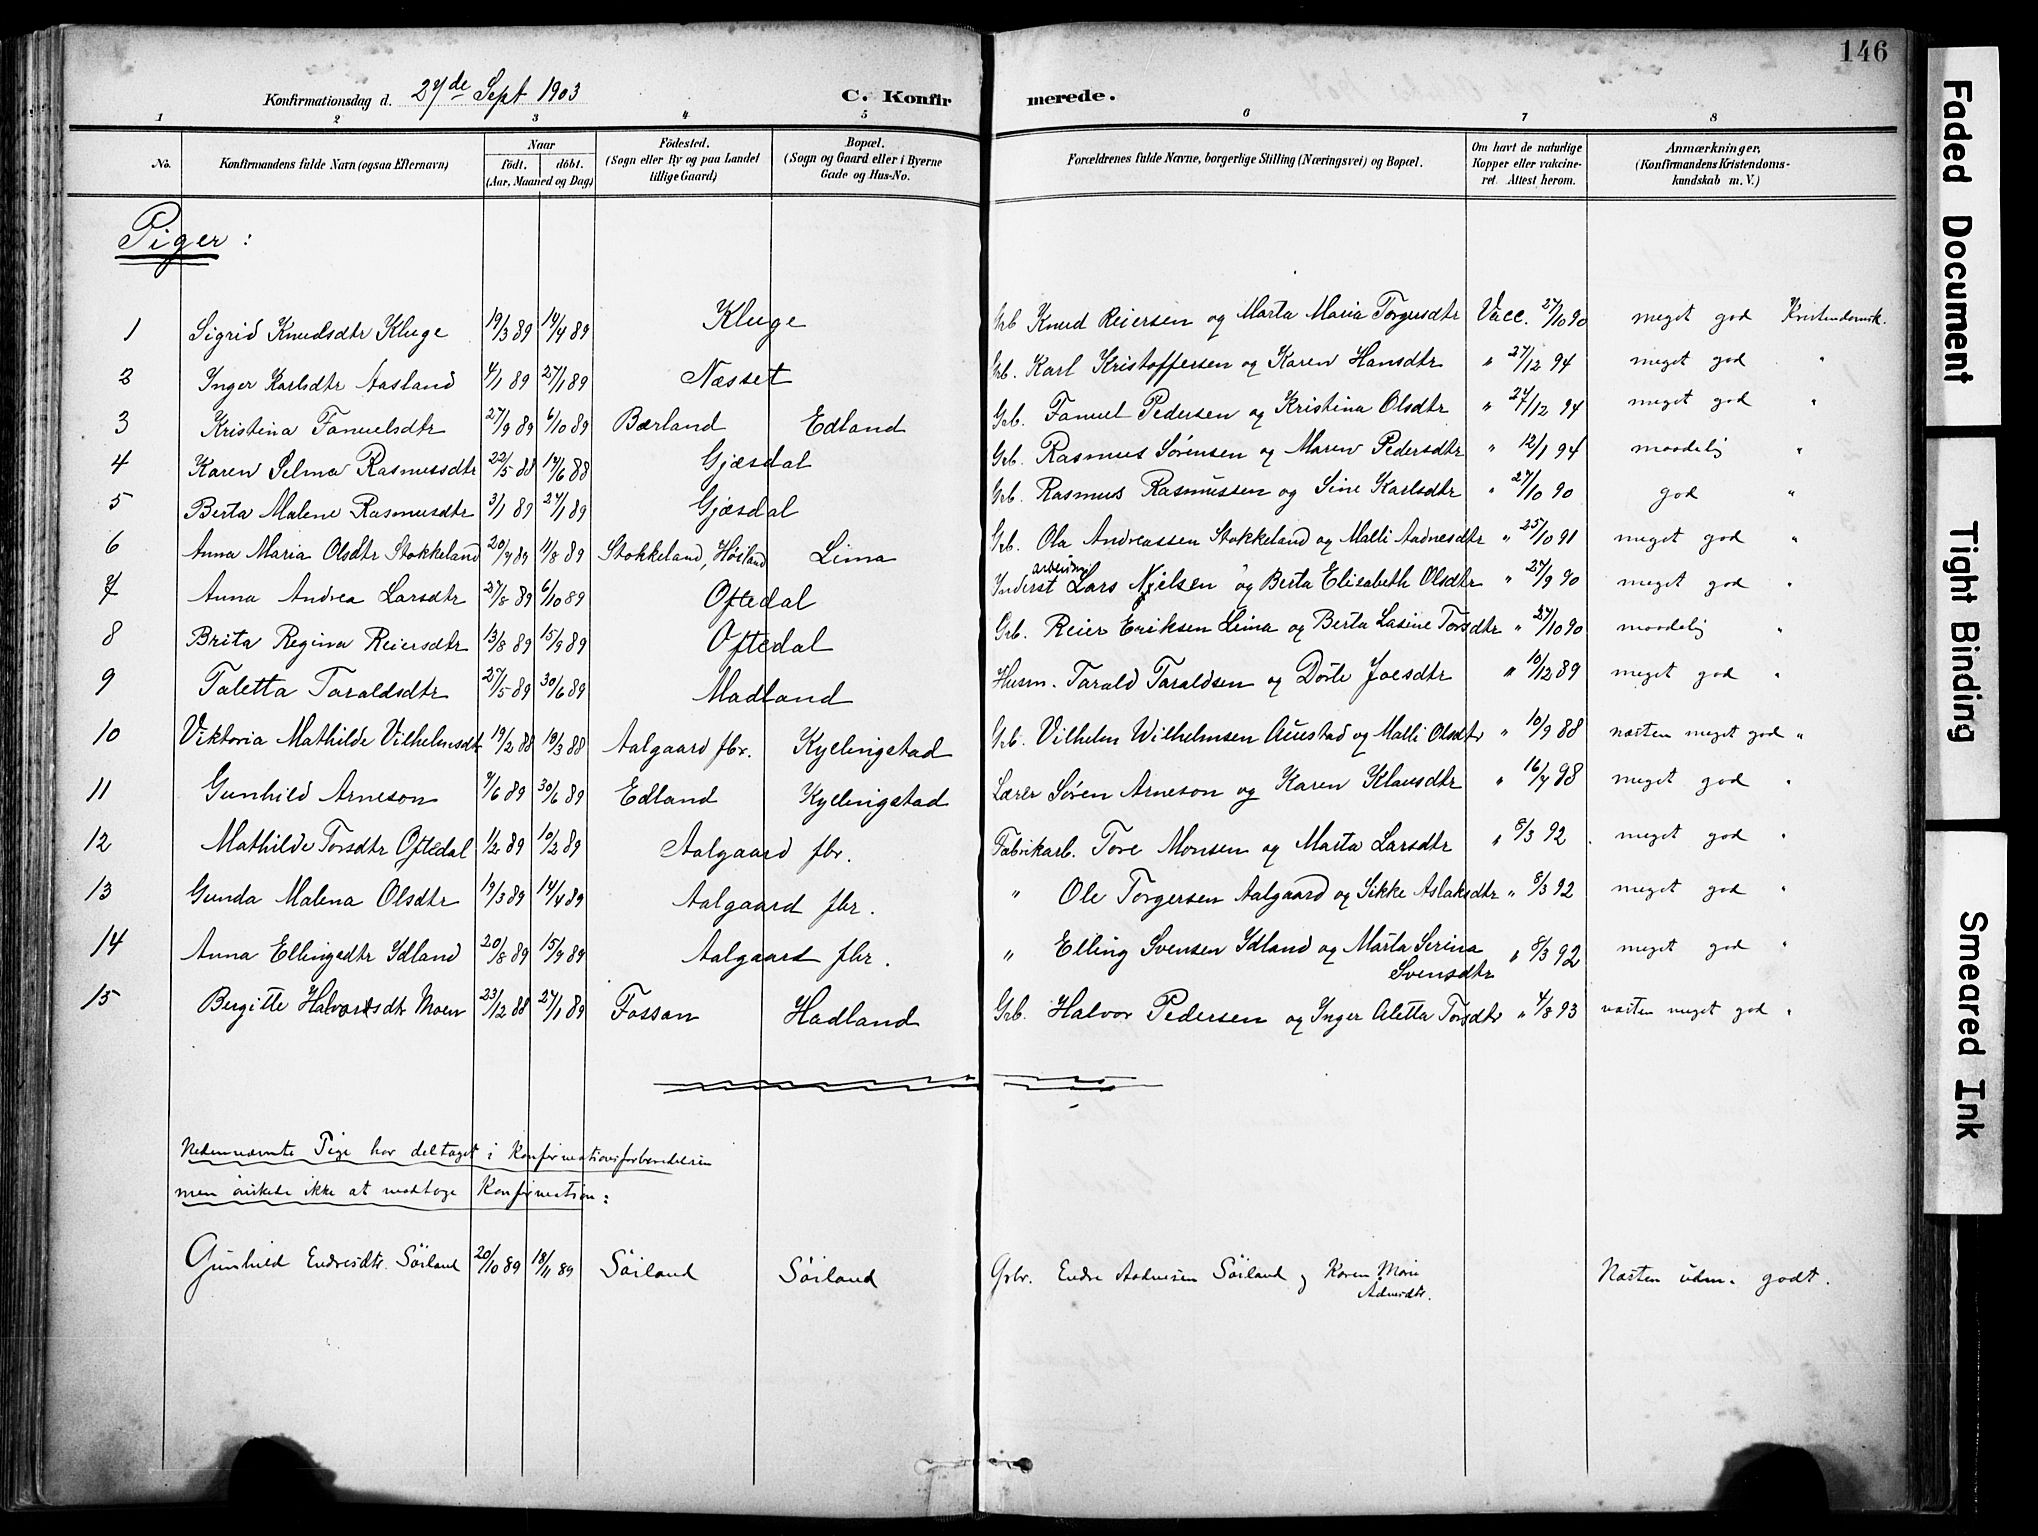 146
Konfirmationsdag d. 27de Sept 1903 C. Konfirmerede.
1 2 3 4 5 6 7 8
No. Konfirmandens fulde Navn (ogsaa Efternavn) Naar født. døbt. (Aar, Maaned og Dag) Fødested. (Sogn eller By og paa Landet tillige Gaard) Bopæl. (Sogn og Gaard eller i Byerne Gade og Hus-No. Forældrenes fulde Navne, borgerlige Stilling (Næringsvei) og Bopæl. Om havt de naturlige Kopper eller vakcineret. Attest herom. Anmærkninger. (Konfirmandens Kristendomskundskab m. V.)
Piger:
1 Sigrid Knudsdtr Kluge 19/3 89 14/4 89 Kluge Grb. Knud Reiersen og Marta Maria Torgersdtr Vacc. 27/10 90 meget god Kristendomsk.
2 Inger Karlsdtr Aasland 4/1 89 27/1 89 Næsset Grb. Karl Kristoffersen og Karen Hansdtr " 27/12 94 meget god "
3 Kristina Fanuelsdtr 27/9 89 6/10 89 Bærland Edland Grb. Fanuel Pedersen og Kristina Olsdtr " 27/12 94 meget god "
4 Karen Selma Rasmusdtr 22/5 88 17/6 88 Gjæsdal Grb. Rasmus Sørensen og Maren Pedersdtr " 12/1 94 maadelig "
5 Berta Malene Rasmusdtr 3/1 89 27/1 89 Gjæsdal Grb. Rasmus Rasmussen og Sine Karlsdtr " 27/10 90 god "
6 Anna Maria Olsdtr Stokkeland 20/7 89 11/8 89 Stokkeland, Høiland Lima Grb. Ola Andreassen Stokkeland og Malli Aadnesdtr " 25/10 91 meget god "
7 Anna Andrea Larsdtr 27/8 89 6/10 89 Oftedal Inderst arbeider Lars Nielsen og Berta Elisabeth Olsdtr " 27/9 90 meget god "
8 Brita Regina Reiersdtr 13/8 89 15/9 89 Oftedal Grb. Reier Eriksen Lima og Berta Lasine Torsdtr " 27/10 90 maadelig "
9 Taletta Taraldsdtr 27/5 89 30/6 89 Madland Husm. Tarald Taraldsen og Dorte Joesdtr " 10/12 89 meget god "
10 Viktoria Mathilde Vilhelmsdtr 19/2 88 18/3 88 Aalgaard fbr. Kyllingstad Grb. Vilhelm Wilhelmsen Auestad og Malli Olsdtr " 10/9 88 næsten meget god "
11 Gunhild Arneson 9/6 89 30/6 89 Edland Kyllingstad Lærer Søren Arneson og Karen Klausdtr " 16/7 98 meget god "
12 Mathilde Torsdtr Oftedal 1/2 89 10/2 89 Aalgaard fbr. Fabrikarb. Tore Monsen og Marta Larsdtr " 8/3 92 meget god "
13 Gunda Malena Olsdtr 19/3 89 14/4 89 Aalgaard fbr. " Ole Torgersen Aalgaard og Sikke Aslaksdtr " 8/3 92 meget god "
14 Anna Ellingsdtr Idland 20/8 89 15/9 89 Aalgaard fbr. " Elling Svensen Idland og Marta Serina Svensdtr " 8/3 92 meget god "
15 Bergitte Halvorsdtr Moen 23/12 88 27/1 89 Fossan Hadland Grb. Halvor Pedersen og Inger Aletta Torsdtr " 4/8 93 næsten meget god "
Nedennævnte Pige har deltaget i Konfirmationsforberedelsen
men ønskede ikke at modtage Konfirmation:
Gunhild Endresdtr. Søiland 20/10 89 18/11 89 Søiland Søiland Grbr. Endre Aadnesen Søiland og Karen Marie Adnesdtr. Næsten udm. godt.
Faded Document
Tight Binding
Smeared Ink